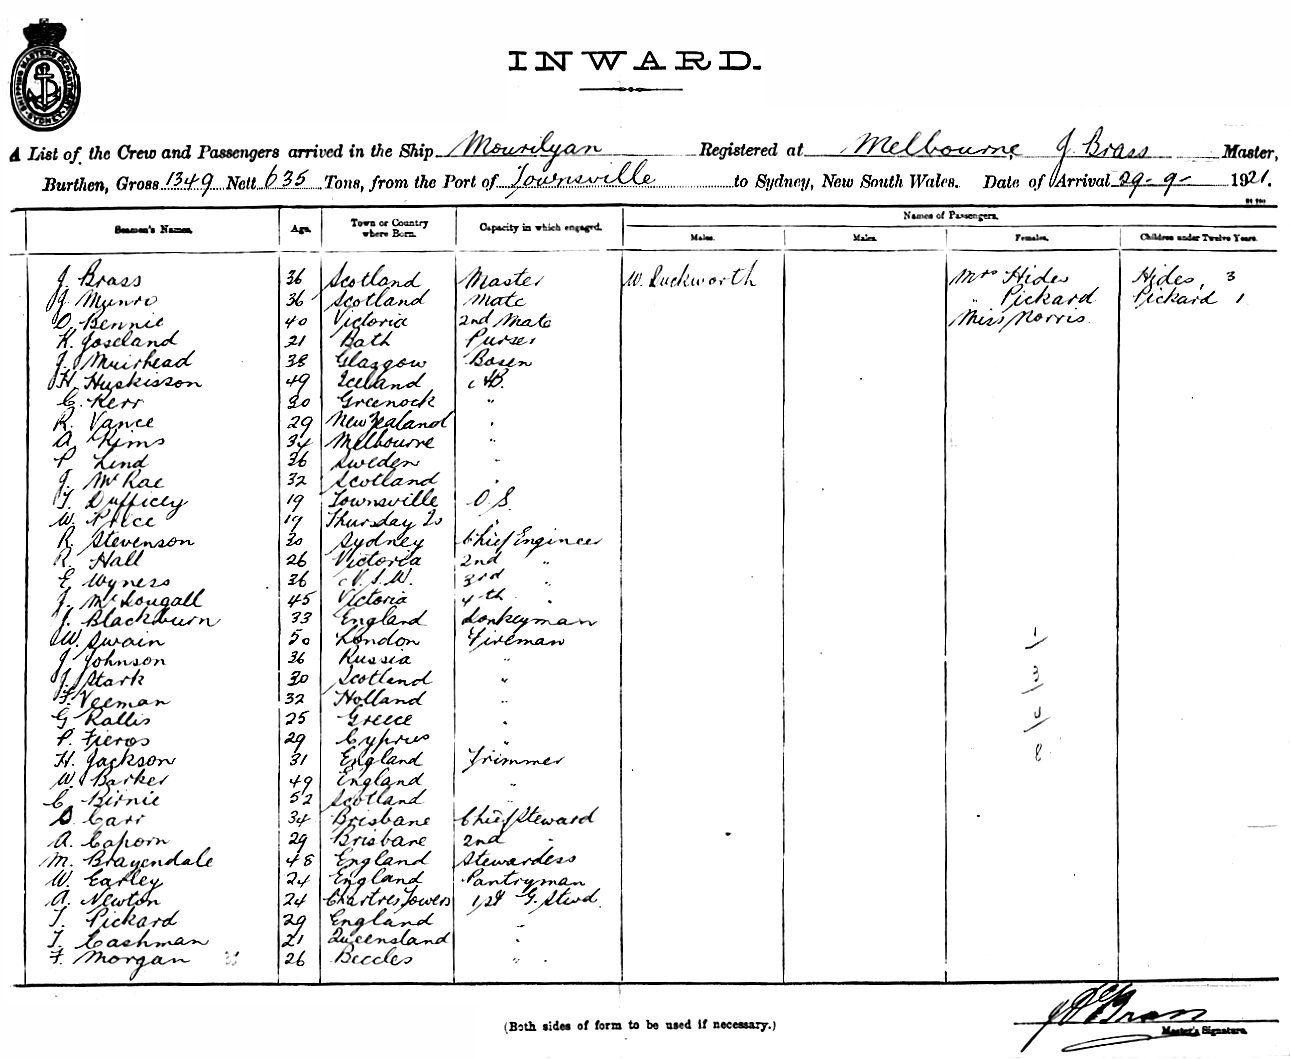 SHIPPING MASTERS DEPARTMENT SYDNEY
INWARD.
A List of the Crew and Passengers arrived in the Ship Mourilyan Registered at Melbourne, J. Brass Master,
Burthen, Gross 1349 Nett 635 Tons, from the Port of Townsville to Sydney, New South Wales. Date of Arrival 29-9- 1921.
Names of Passengers.
Seamen's Names. Age. Town or Country where Born. Capacity in which engaged. Males. Males. Females. Children under Twelve Years.
J. Brass 36 Scotland Master W. Duckworth Mrs Hides Hides, 3
J. Munro 36 Scotland Mate " Pickard Pickard 1
D. Bennie 40 Victoria 2nd Mate Miss Norris
K. Joseland 21 Bath Purser
J. Muirhead 38 Glasgow Bosen
H. Huskisson 49 Iceland AB.
C. Kerr 30 Greenock "
R. Vance 29 New Zealand "
A. Kims 34 Melbourne "
P. Lind 36 Sweden "
J. McRae 32 Scotland "
T. Dufficey 19 Townsville O.S.
W. Price 19 Thursday Is "
R. Stevenson 30 Sydney Chief Engineer
R. Hall 26 Victoria 2nd "
E. Wyness 36 N.S.W. 3rd "
J. McDougall 45 Victoria 4th "
J. Blackburn 33 England Donkeyman
W. Swain 50 London Fireman
J. Johnson 36 Russia "
J. Stark 30 Scotland "
F. Veeman 32 Holland "
G. Rallis 25 Greece "
P. Fieros 29 Cyprus "
H. Jackson 31 England Trimmer
W. Barker 49 England "
C. Birnie 52 Scotland
D. Carr 34 Brisbane Chief Steward
A. Caporn 29 Brisbane 2nd "
M. Brayendale 48 England Stewardess
W. Earley 24 England Pantryman
A. Newton 24 Chartres Towers 1st G. Stwd.
T. Pickard 29 England "
T. Cashman 21 Queensland "
F. Morgan 26 Beccles "
1/3/4/8
J Brass
Master's Signature.
(Both sides of form to be used if necessary.)